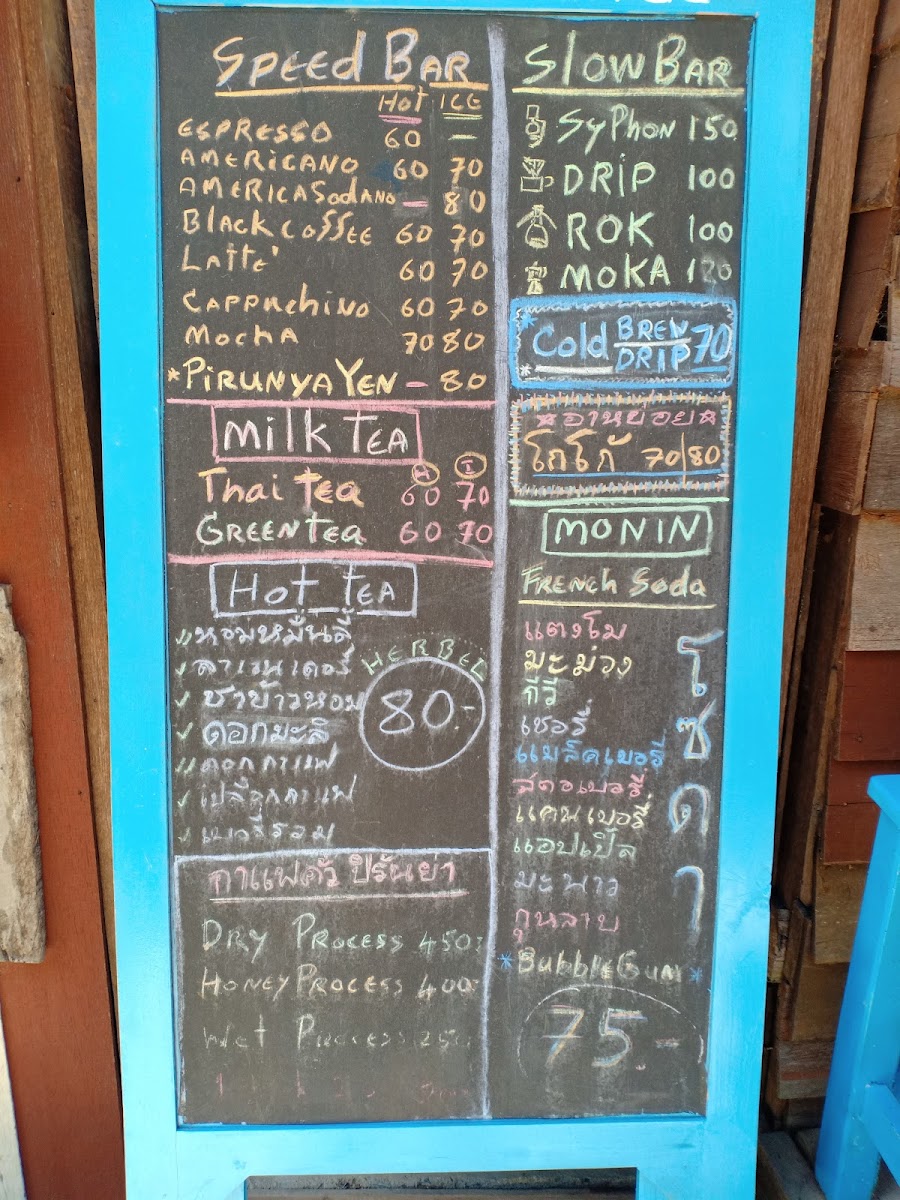 Speed Bar
Hot ICE
ESPRESSO 60 —
AMERICANO 60 70
AMERICASodANO — 80
Black coffee 60 70
Latte' 60 70
CAPPUchiNO 60 70
MochA 70 80
*PiRUNYA YEN - 80
Milk TEA
H I
Thai tea 60 70
GREEN tea 60 70
Hot tEA
หอมหมื่นลี้
ลาเวนเดอร์
ชาข้าวหอม
ดอกมะลิ
ดอกกาแฟ
เปลือกกาแฟ
เบอร์รี่รวม
HERBEL
80.-
กาแฟคั่ว ปิรันย่า
DRY PROCESS 450.-
HONEY PROCESS 400.-
Wet Process 250.
Slow BAR
SyPhon 150
DRiP 100
ROK 100
MOKA 120
*Cold BREW 70
* DRIP
อาหย่อย
โกโก้ 70/80
MONIN
FRENCH Soda
แตงโม
มะม่วง
กีวี
เชอรี่
แบล็คเบอรี่
สตอเบอรี่
แคนเบอรี่
แอปเปิ้ล
มะนาว
กุหลาบ
*BubbleGum*
โซดา
75.-